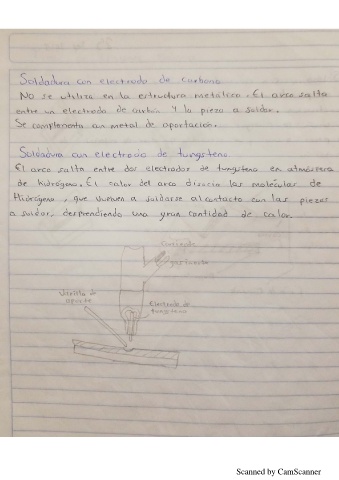 Soldadura con electrodo de carbono
No se utiliza en la estructura metálica. El arco salta
entre un electrodo de carbón y la pieza a soldar.
Se complementa con metal de aportación.
Soldadura con electrodo de tungsteno
El arco salta entre dos electrodos de tungsteno en atmósfera
de hidrógeno. El calor del arco disocia las moléculas de
Hidrógeno, que vuelven a soldarse al contacto con las piezas
a soldar, desprendiendo una gran cantidad de calor.
Corriente
Varilla de
aporte
Electrodo de
tungsteno
Scanned by CamScanner